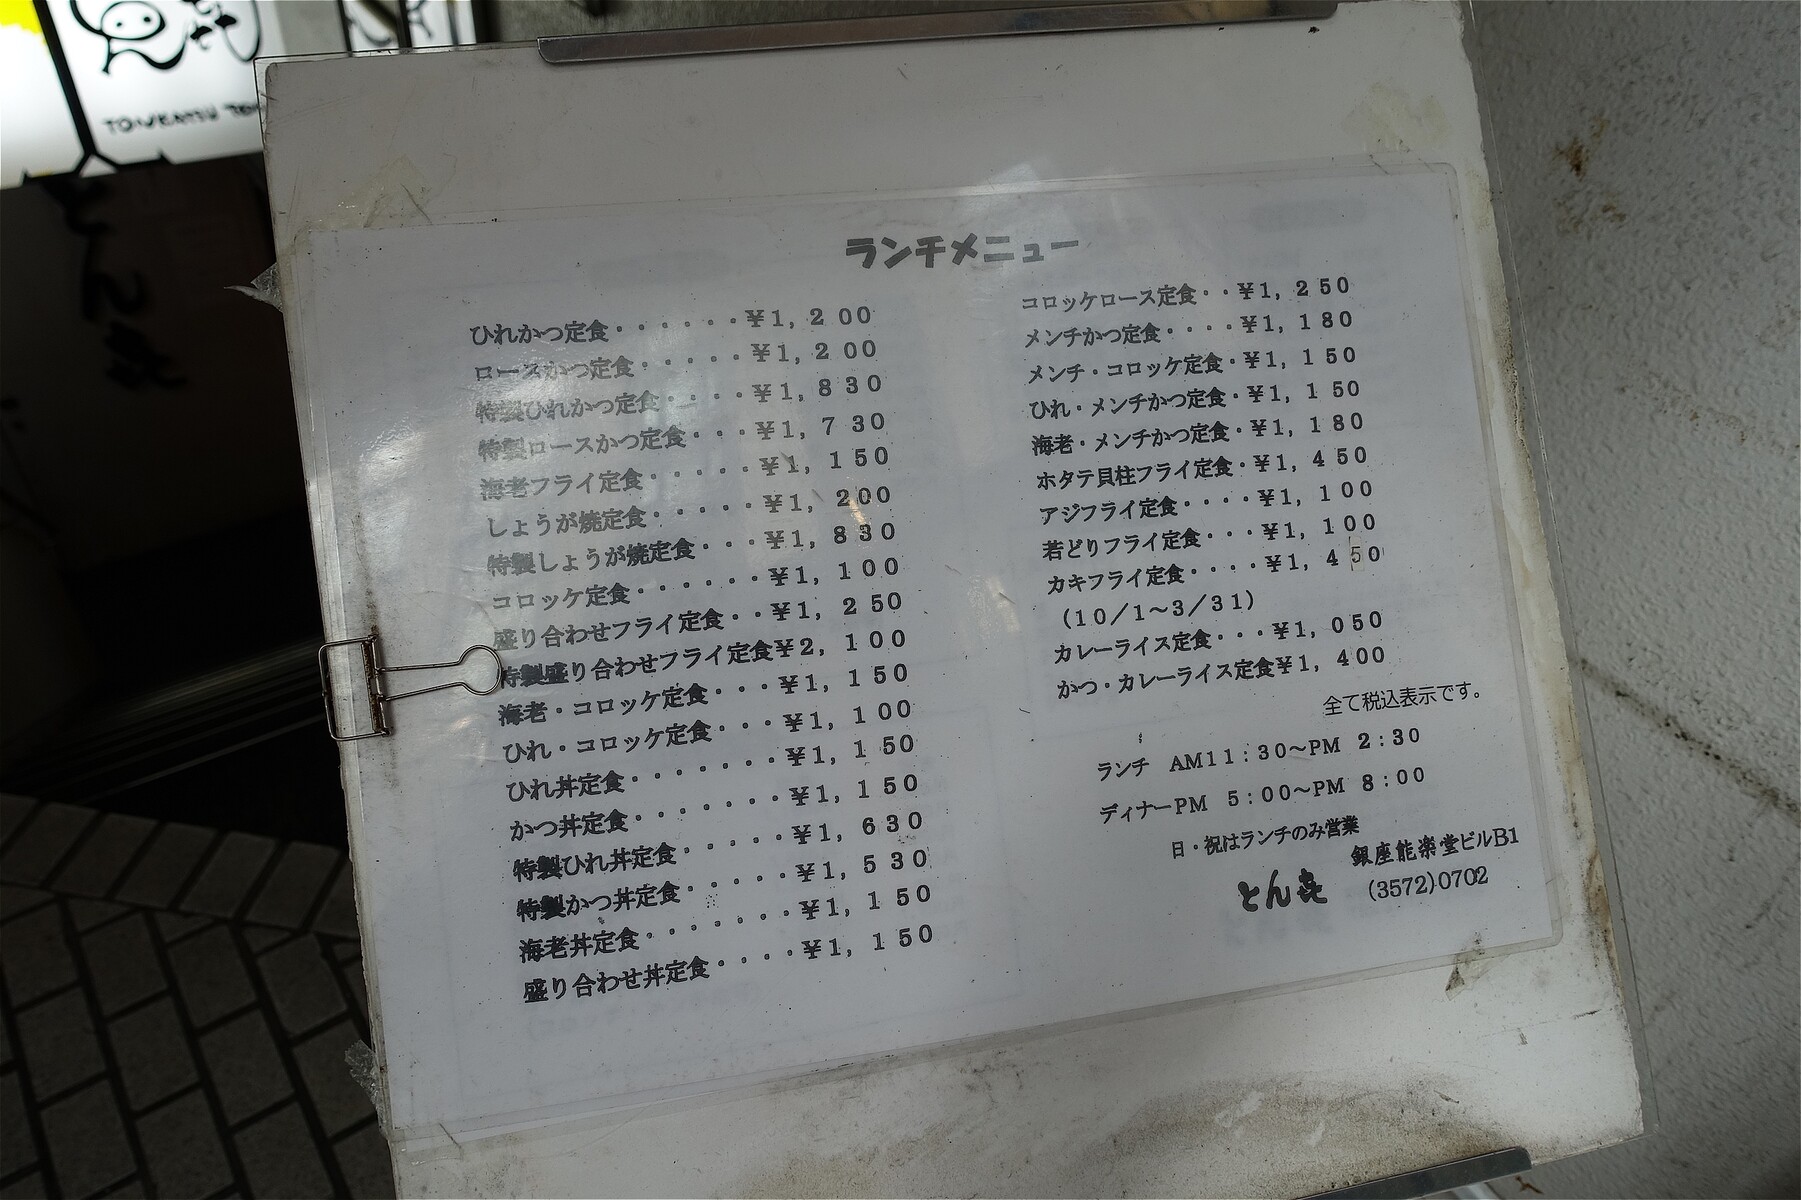 TONKATSU
ランチメニュー
ひれかつ定食・・・・・・・¥1,200
ロースかつ定食・・・・・¥1,200
特製ひれかつ定食・・・・¥1,830
特製ロースかつ定食・・・¥1,730
海老フライ定食・・・・・¥1,150
しょうが焼定食・・・・・¥1,200
特製しょうが焼定食・・・¥1,830
コロッケ定食・・・・・・¥1,100
盛り合わせフライ定食・・¥1,250
特製盛り合わせフライ定食¥2,100
海老・コロッケ定食・・・¥1,150
ひれ・コロッケ定食・・・¥1,100
ひれ丼定食・・・・・・・¥1,150
かつ丼定食・・・・・・・¥1,150
特製ひれ丼定食・・・・・¥1,630
特製かつ丼定食・・・・・¥1,530
海老丼定食・・・・・・・¥1,150
盛り合わせ丼定食・・・・¥1,150
コロッケロース定食・・¥1,250
メンチかつ定食・・・・¥1,180
メンチ・コロッケ定食・¥1,150
ひれ・メンチかつ定食・¥1,150
海老・メンチかつ定食・¥1,180
ホタテ貝柱フライ定食・¥1,450
アジフライ定食・・・・¥1,100
若どりフライ定食・・・¥1,100
カキフライ定食・・・・¥1,450
(10/1〜3/31)
カレーライス定食・・・¥1,050
かつ・カレーライス定食¥1,400
全て税込表示です。
ランチ AM11:30〜PM 2:30
ディナーPM 5:00〜PM 8:00
日・祝はランチのみ営業
銀座能楽堂ビルB1
とん㐂 (3572)0702